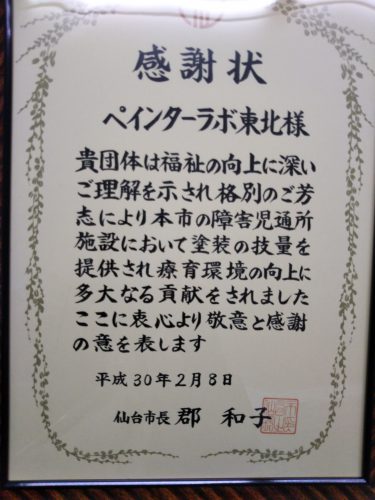 感謝状
ペインターラボ東北様
貴団体は福祉の向上に深い
ご理解を示され格別のご芳
志により本市の障害児通所
施設において塗装の技量を
提供され療育環境の向上に
多大なる貢献をされました
ここに衷心より敬意と感謝
の意を表します
平成30年2月8日
仙台市長 郡 和子